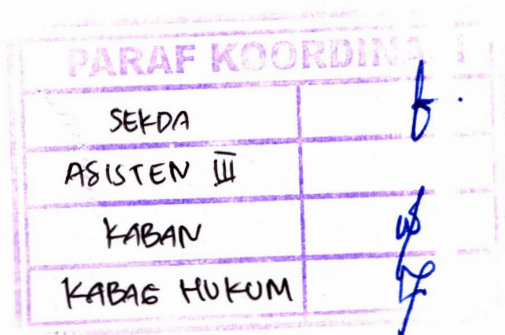 PARAF KOORDINASI
SEKDA
ASISTEN III
KABAN
KABAG HUKUM